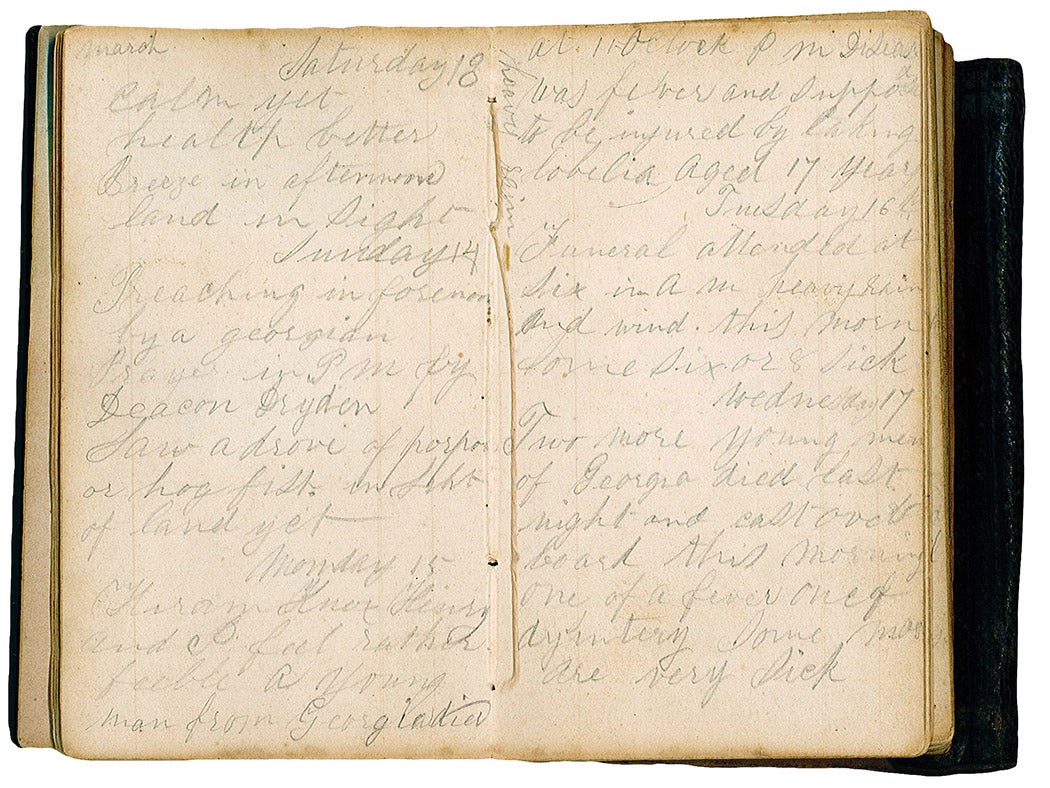 march
Saturday 13
calm yet
health better
Breeze in afternoon
land in sight
Sunday 14
Preaching in forenon
by a georgian
Prayer in P M by
Deacon Dryden
Saw a drove of porpos
or hog fish. in siht
of land yet
Monday 15
Hiram Knox Henry
and I feel rather
feeble A young
man from Georgia died
heavy rain
at 11 Oclock P m Diseas
was fever and suppo
to be injured by taking
lobelia Aged 17 years
Tuesday 16
Funeral attended at
Six in A m heavy rain
And wind. this morn
some six or 8 sick
Wednesday 17
Two more young men
of Georgia died last
night and cast over
board this morning
one of a fever one of
dysintery Some more
are very sick